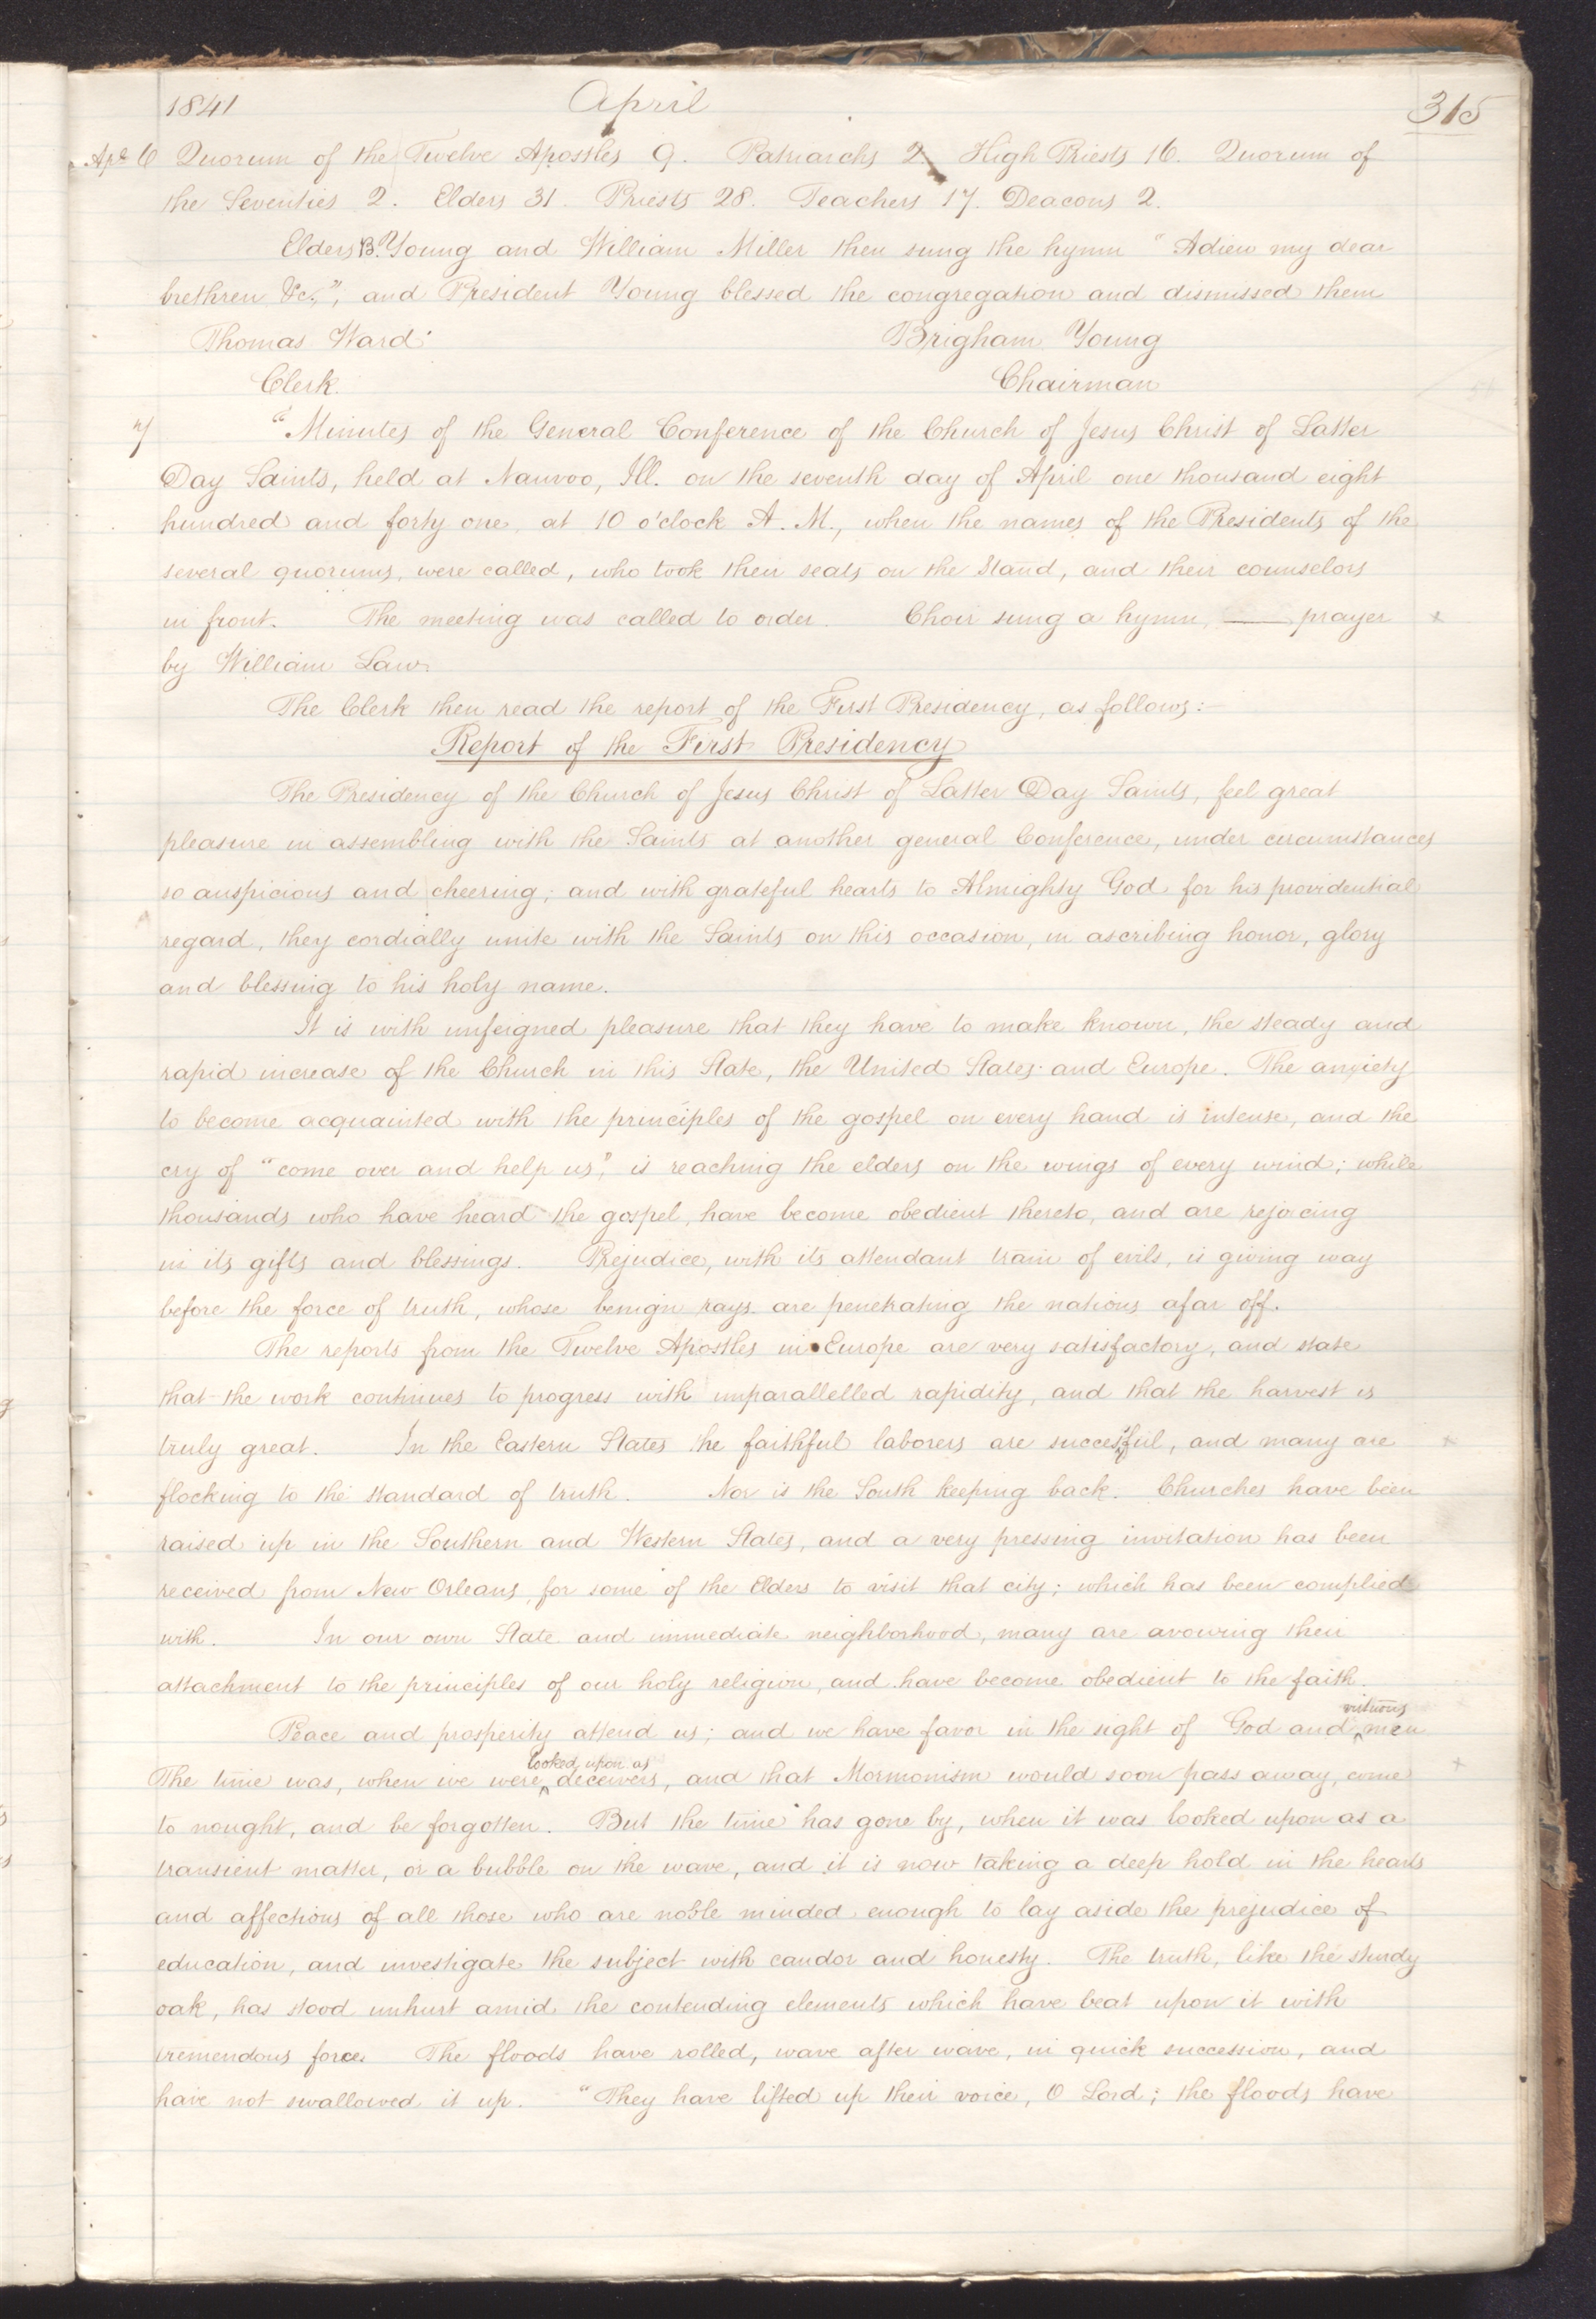 1841 April 315
Apl 6 Quorum of the Twelve Apostles 9. Patriarchs 2 High Priests 16. Quorum of
the Seventies 2. Elders 31. Priests 28. Teachers 17. Deacons 2.
Elders B. Young and William Miller then sung the hymn "Adieu my dear
brethren &c.", and President Young blessed the congregation and dismissed them
Thomas Ward Brigham Young
Clerk. Chairman
7 "Minutes of the General Conference of the Church of Jesus Christ of Latter
Day Saints, held at Nauvoo, Ill. on the seventh day of April one thousand eight
hundred and forty one, at 10 o'clock A. M., when the names of the Presidents of the
several quorums, were called, who took their seats on the Stand, and their counselors
in front. The meeting was called to order. Choir sung a hymn, — prayer
by William Law.
The Clerk then read the report of the First Presidency, as follows:—
Report of the First Presidency
The Presidency of the Church of Jesus Christ of Latter Day Saints, feel great
pleasure in assembling with the Saints at another general Conference, under circumstances
so auspicious and cheering; and with grateful hearts to Almighty God for his providential
regard, they cordially unite with the Saints on this occasion, in ascribing honor, glory
and blessing to his holy name.
It is with unfeigned pleasure that they have to make known, the steady and
rapid increase of the Church in this State, the United States and Europe. The anxiety
to become acquainted with the principles of the gospel on every hand is intense, and the
cry of "come over and help us", is reaching the elders on the wings of every wind; while
thousands who have heard the gospel, have become obedient thereto, and are rejoicing
in its gifts and blessings. Prejudice, with its attendant train of evils, is giving way
before the force of truth, whose benign rays are penetrating the nations afar off.
The reports from the Twelve Apostles in Europe are very satisfactory, and state
that the work continues to progress with unparallelled rapidity, and that the harvest is
truly great. In the Eastern States the faithful laborers are successful, and many are
flocking to the standard of truth. Nor is the South keeping back. Churches have been
raised up in the Southern and Western States, and a very pressing invitation has been
received from New Orleans, for some of the Elders to visit that city; which has been complied
with. In our own State and immediate neighborhood, many are avowing their
attachment to the principles of our holy religion, and have become obedient to the faith.
Peace and prosperity attend us; and we have favor in the sight of God and virtuous men
The time was, when we were looked upon as deceivers, and that Mormonism would soon pass away, come
to nought, and be forgotten. But the time has gone by, when it was looked upon as a
transient matter, or a bubble on the wave, and it is now taking a deep hold in the hearts
and affections of all those who are noble minded enough to lay aside the prejudice of
education, and investigate the subject with candor and honesty. The truth, like the sturdy
oak, has stood unhurt amid the contending elements which have beat upon it with
tremendous force. The floods have rolled, wave after wave, in quick succession, and
have not swallowed it up. "They have lifted up their voice, O Lord; the floods have